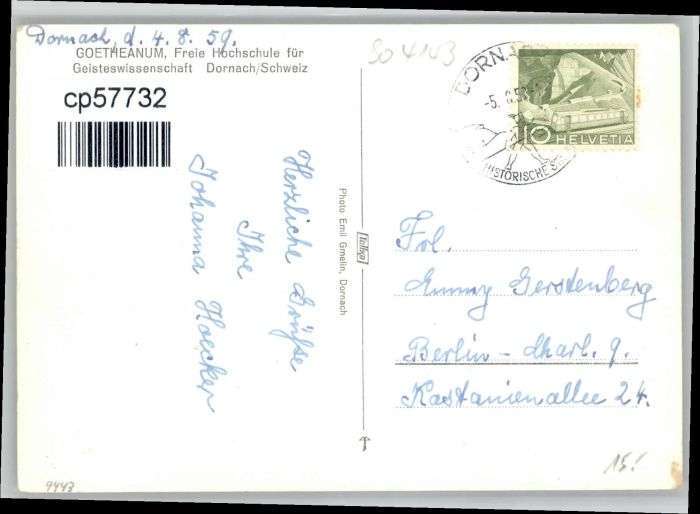 Dornach, d. 4. 8. 59.
GOETHEANUM, Freie Hochschule für
Geisteswissenschaft Dornach/Schweiz
cp57732
SO 4143
DORNACH
-5.
HISTORISCHE
10 HELVETIA
Herzliche Grüße
Ihre
Johanna Hoecker
Photo Emil Gmelin, Dornach
Frl.
Emmy Gerstenberg
Berlin - Charl. 9.
Kastanienallee 24.
15.-
9443